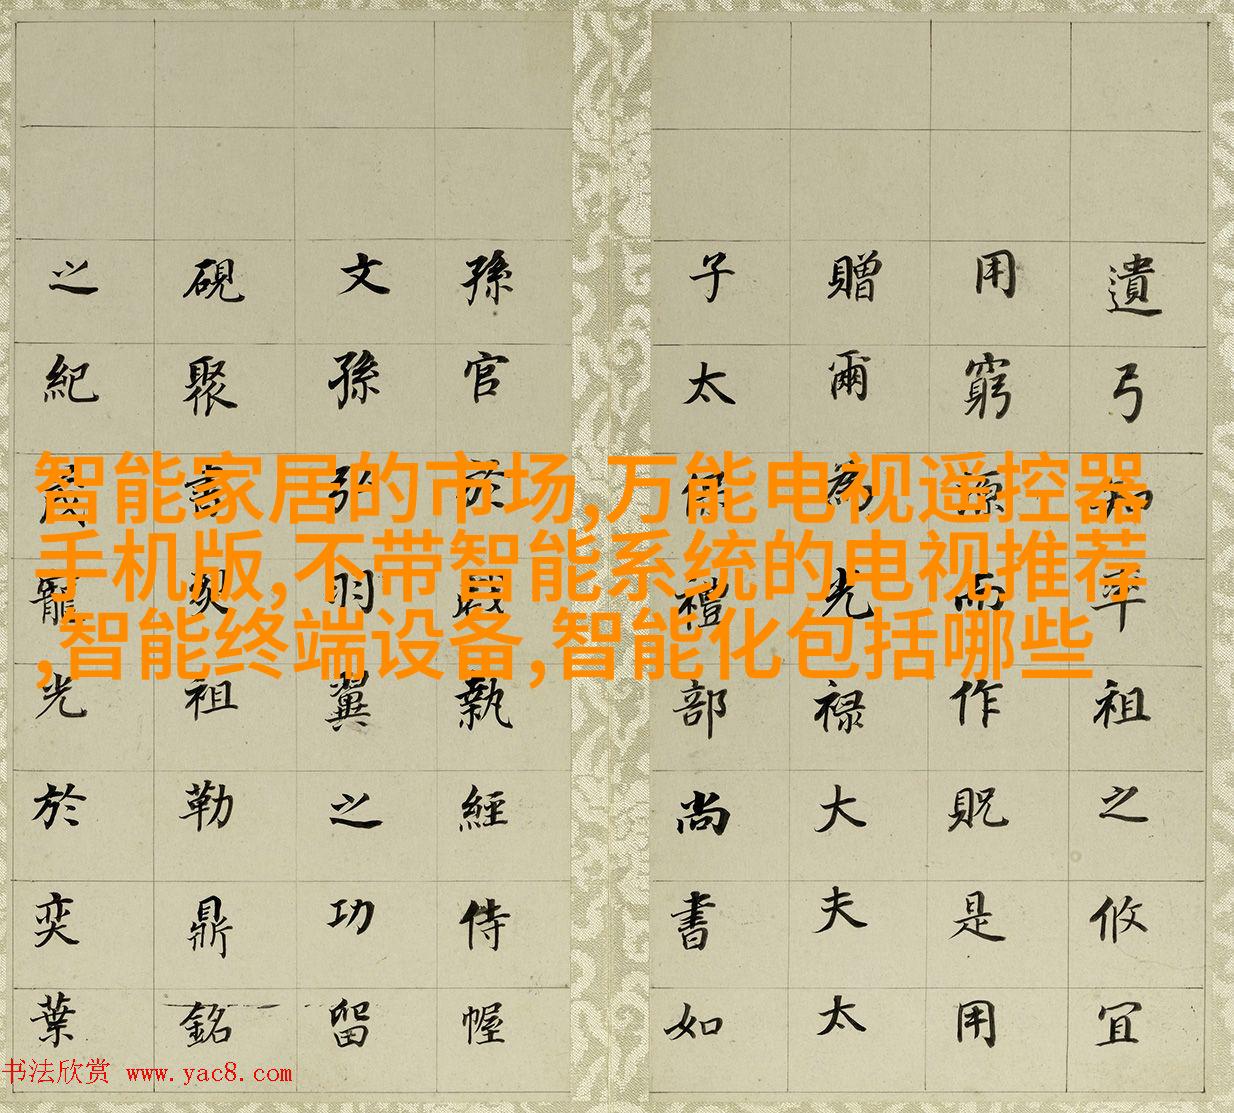 遺弓知率祖之攸宜
用窮源而作貺是用
贈爾為光禄大夫太
子太保禮部尚書如
孫官於殿執經侍幄
文孫弘羽翼之功留
硯聚言祖勒鼎銘
之紀寵光於奕葉
智能家居的市场,万能电视遥控器
手机版,不带智能系统的电视推荐
,智能终端设备,智能化包括哪些
书法欣赏 www.yac8.com